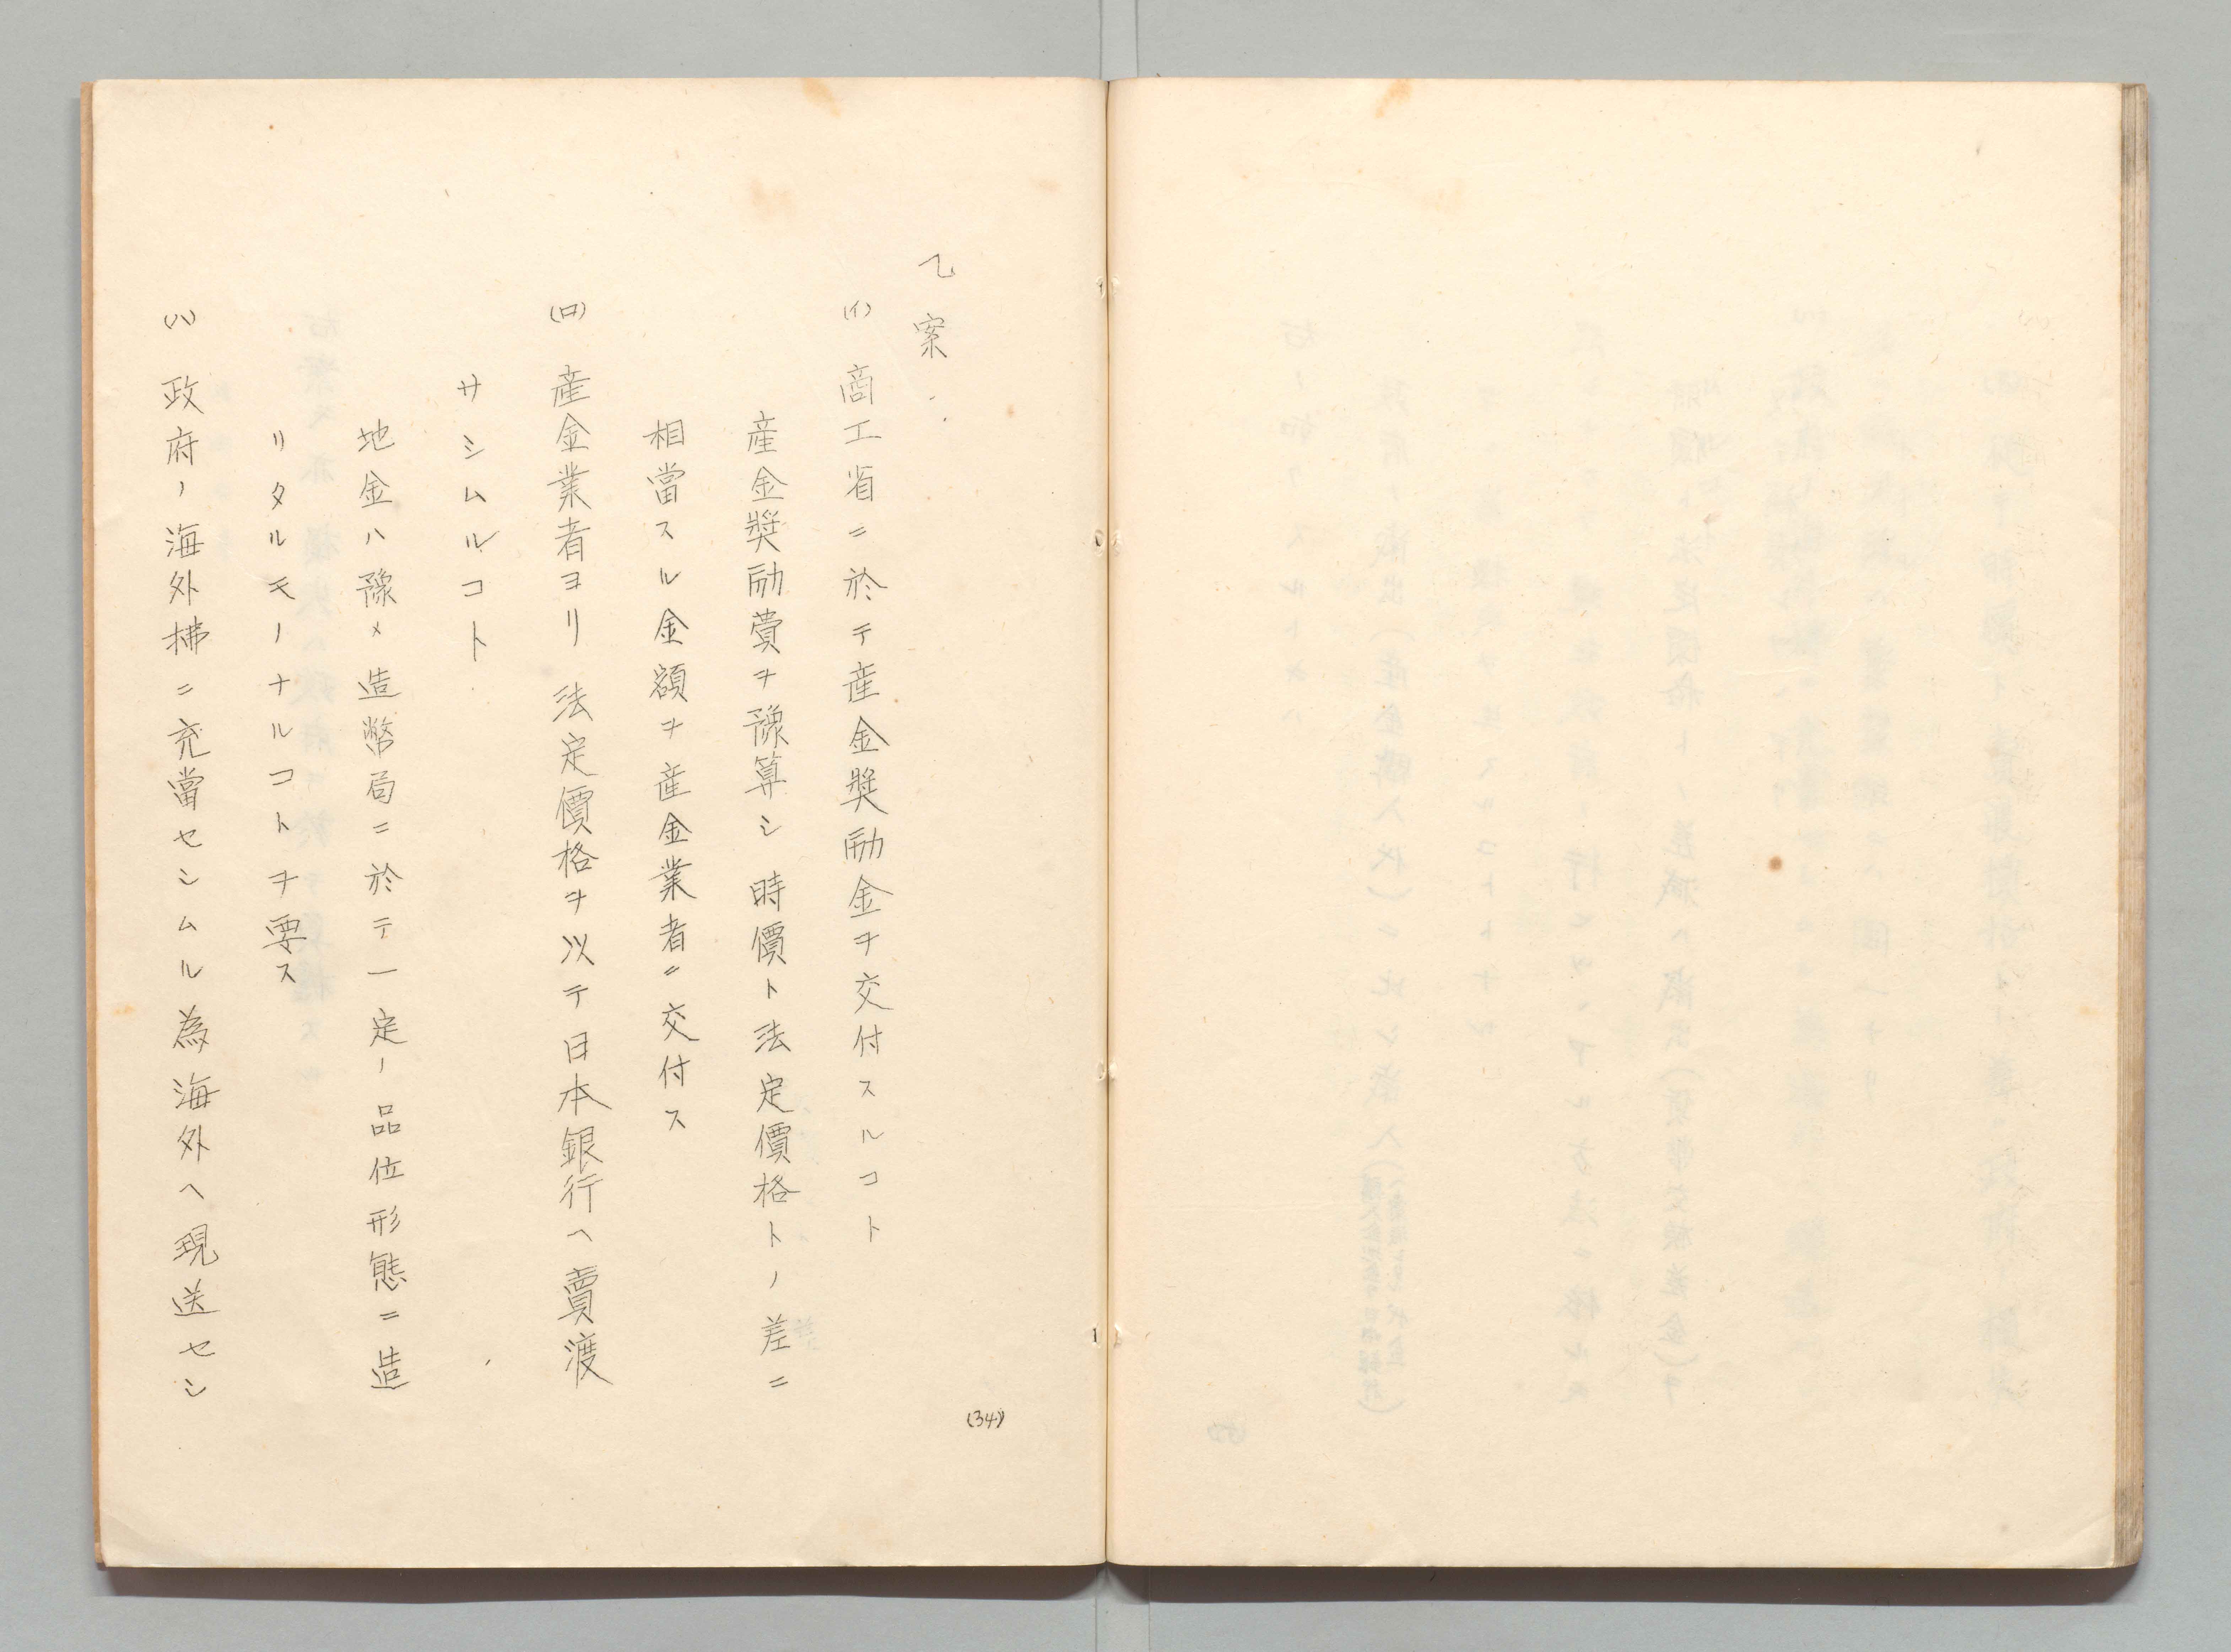 乙案
(イ) 商工省ニ於テ産金奬励金ヲ交付スルコト
産金奬励費ヲ豫算シ時價ト法定價格トノ差ニ
相當スル金額ヲ産金業者ニ交付ス
(ロ) 産金業者ヨリ法定價格ヲ以テ日本銀行ヘ賣渡
サシムルコト
地金ハ豫メ造幣局ニ於テ一定ノ品位形態ニ造
リタルモノナルコトヲ要ス
(ハ) 政府ノ海外拂ニ充當セシムル為海外ヘ現送セシ
(34)